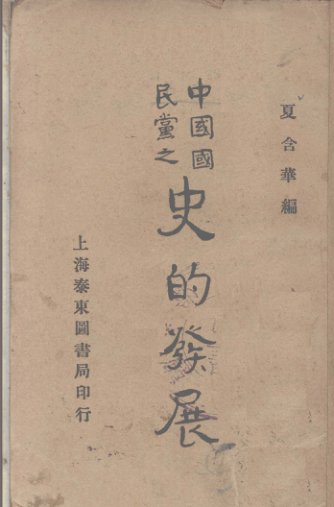 夏含華編
中國國
民黨之
史的發展
上海泰東圖書局印行